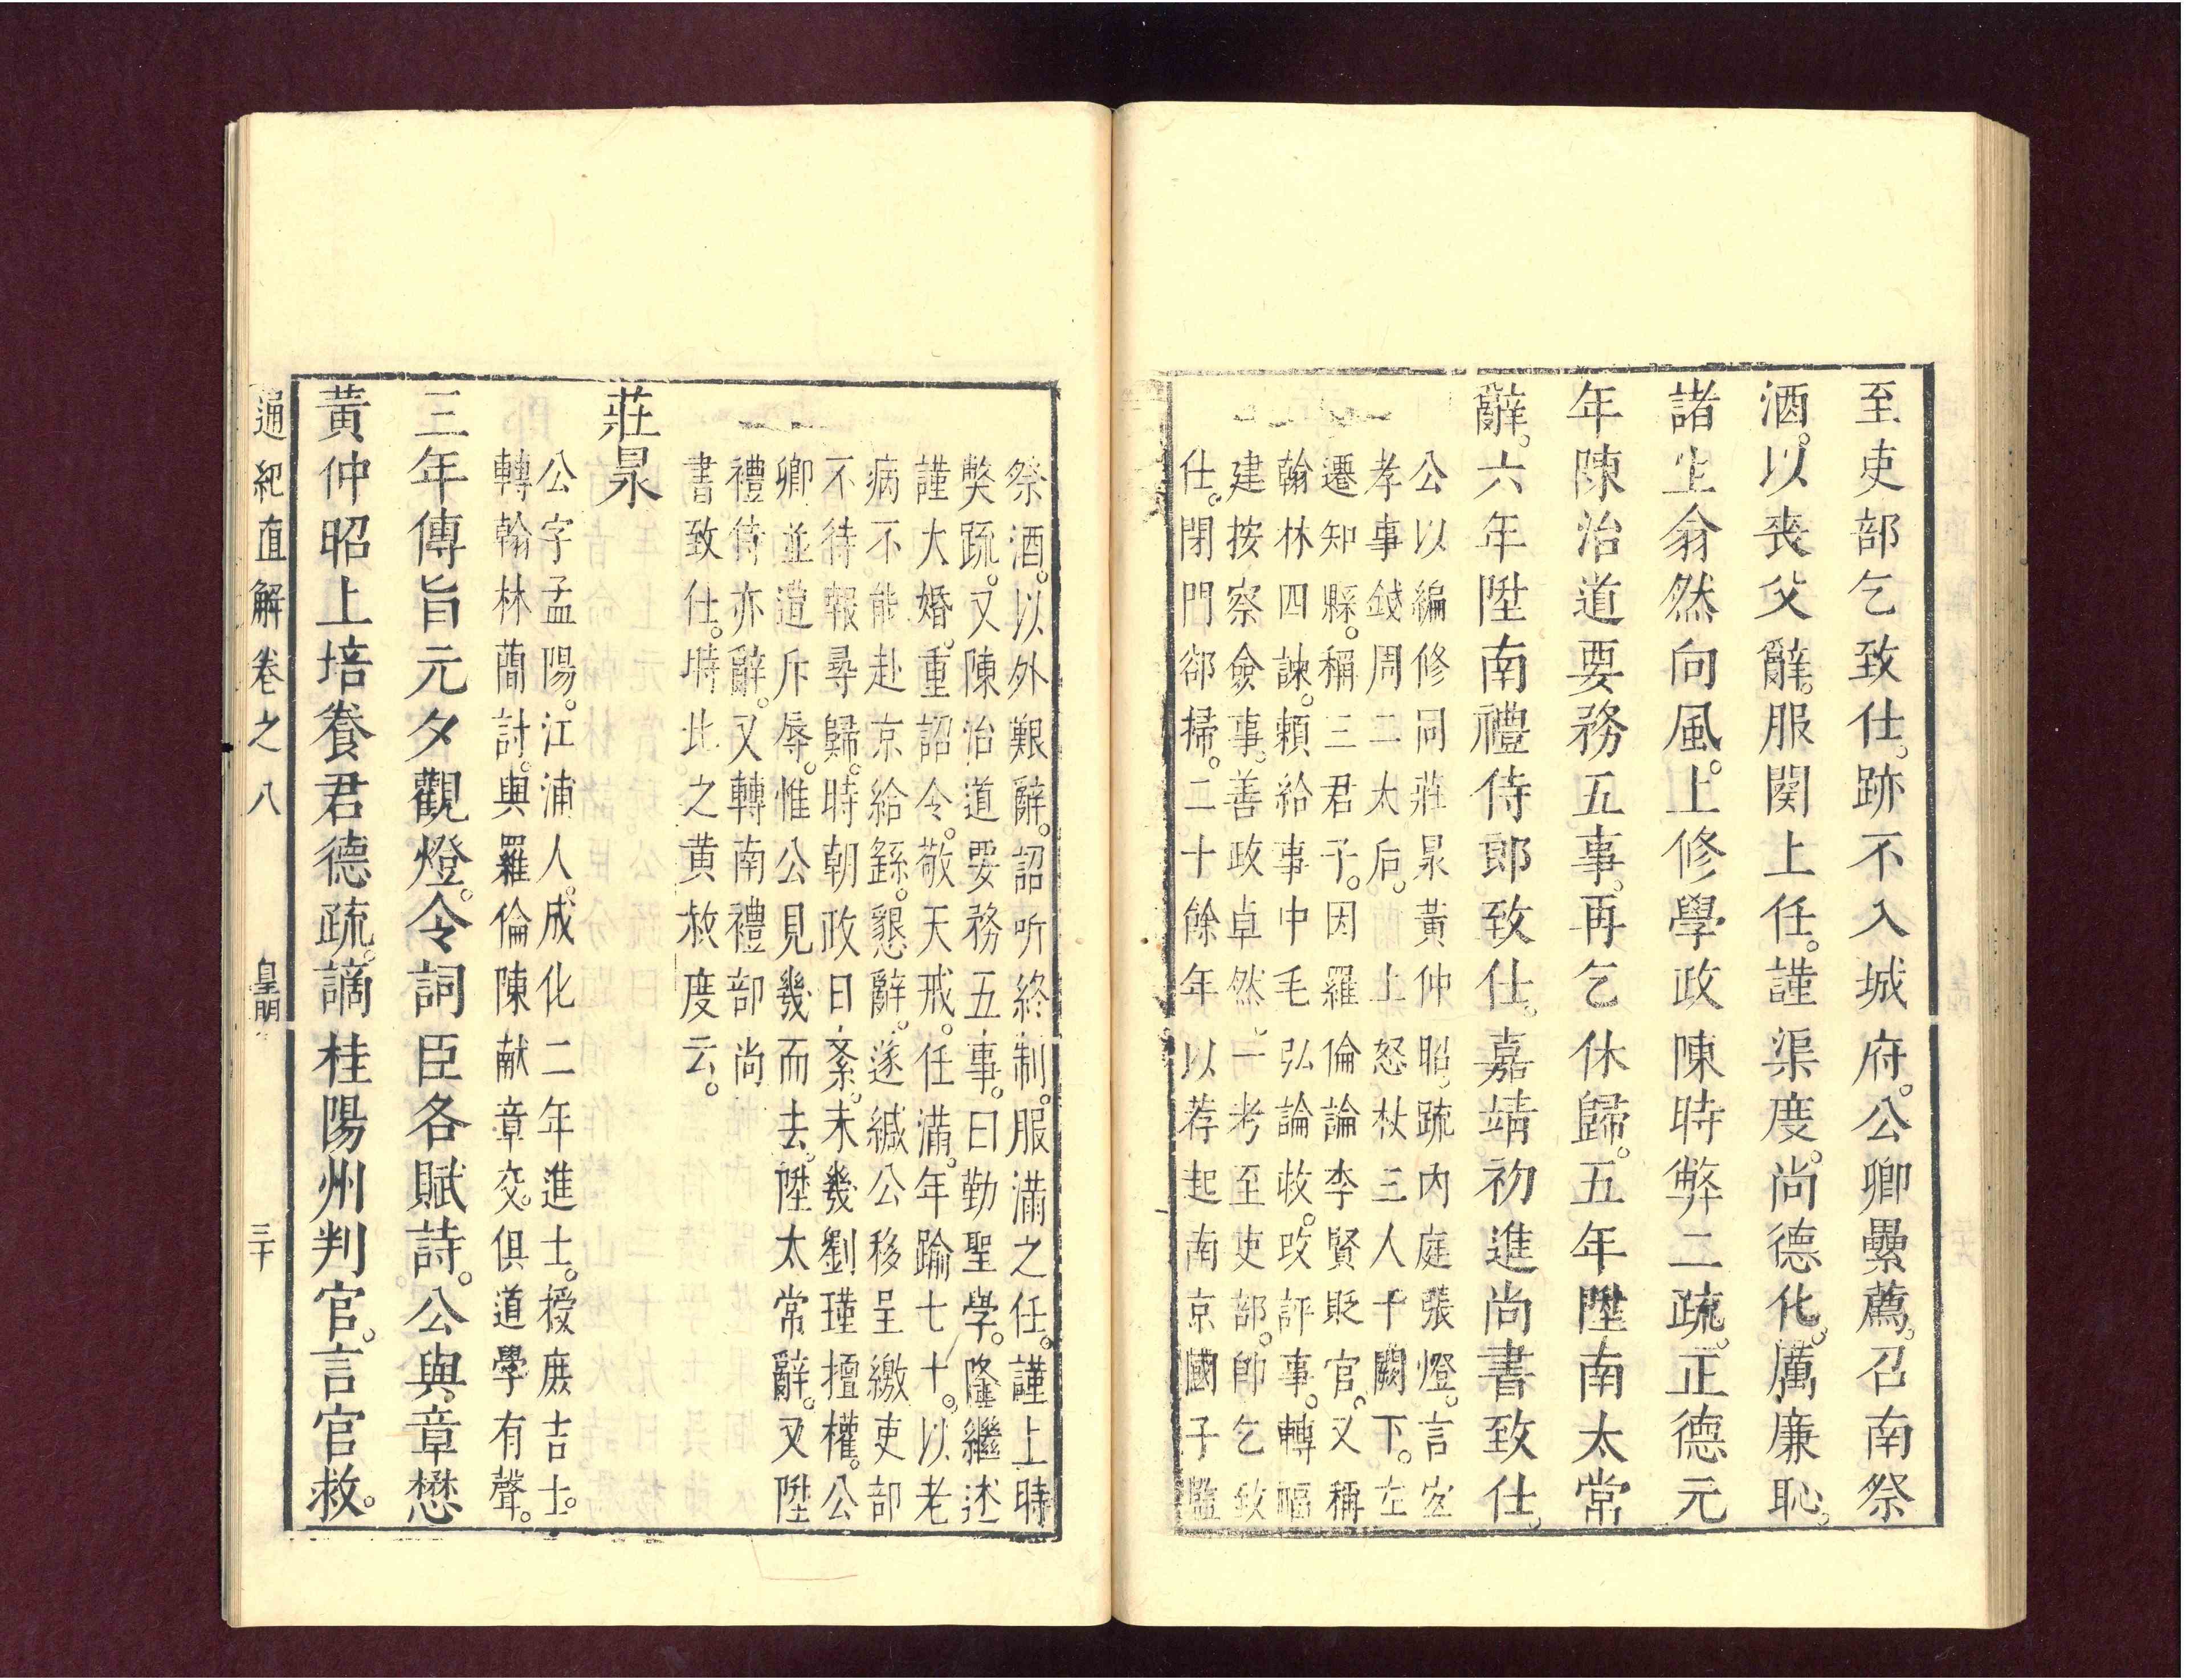 至吏部乞致仕。跡不入城府。公卿纍薦。召南祭
酒。以喪父辭。服闋上任。謹渠度。尚德化。厲廉恥。
諸生翕然向風。上修學政陳時弊二疏。正德元
年陳治道要務五事。再乞休歸。五年陞南太常
辭。六年陞南禮侍郎致仕。嘉靖初進尚書致仕。
公以編修同莊㫤黃仲昭。疏內庭張燈。言宜
孝事錢周二太后。上怒杖三人于闕下。左
遷知縣。稱三君子。因羅倫論李賢貶官。又稱
翰林四諫。賴給事中毛弘論救。改評事。轉福
建按察僉事。善政卓然。一考至吏部。卽乞致
仕。閉門郤掃。二十餘年以荐起南京國子監
祭酒。以外艱辭。詔听終制。服滿之任。謹上時
獘疏。又陳治道要務五事。曰勤聖學。隆繼述
謹大婚。重詔令。敬天戒。任滿。年踰七十。以老
病不能赴京給繇。懇辭。遂緘公移呈繳吏部
不待報尋歸。時朝政日紊。未幾劉瑾擅權。公
卿並遭斥辱。惟公見幾而去。陞太常辭。又陞
禮侍亦辭。又轉南禮部尚
書致仕。時比之黄叔度云。
莊㫤
公字孟陽。江浦人。成化二年進士。授庶吉士。
轉翰林蕳討。與羅倫陳献章交。俱道學有聲。
三年傳旨元夕觀燈。令詞臣各賦詩。公與章懋
黃仲昭上培養君德疏。謫桂陽州判官。言官救。
通紀直解卷之八 皇明 三十